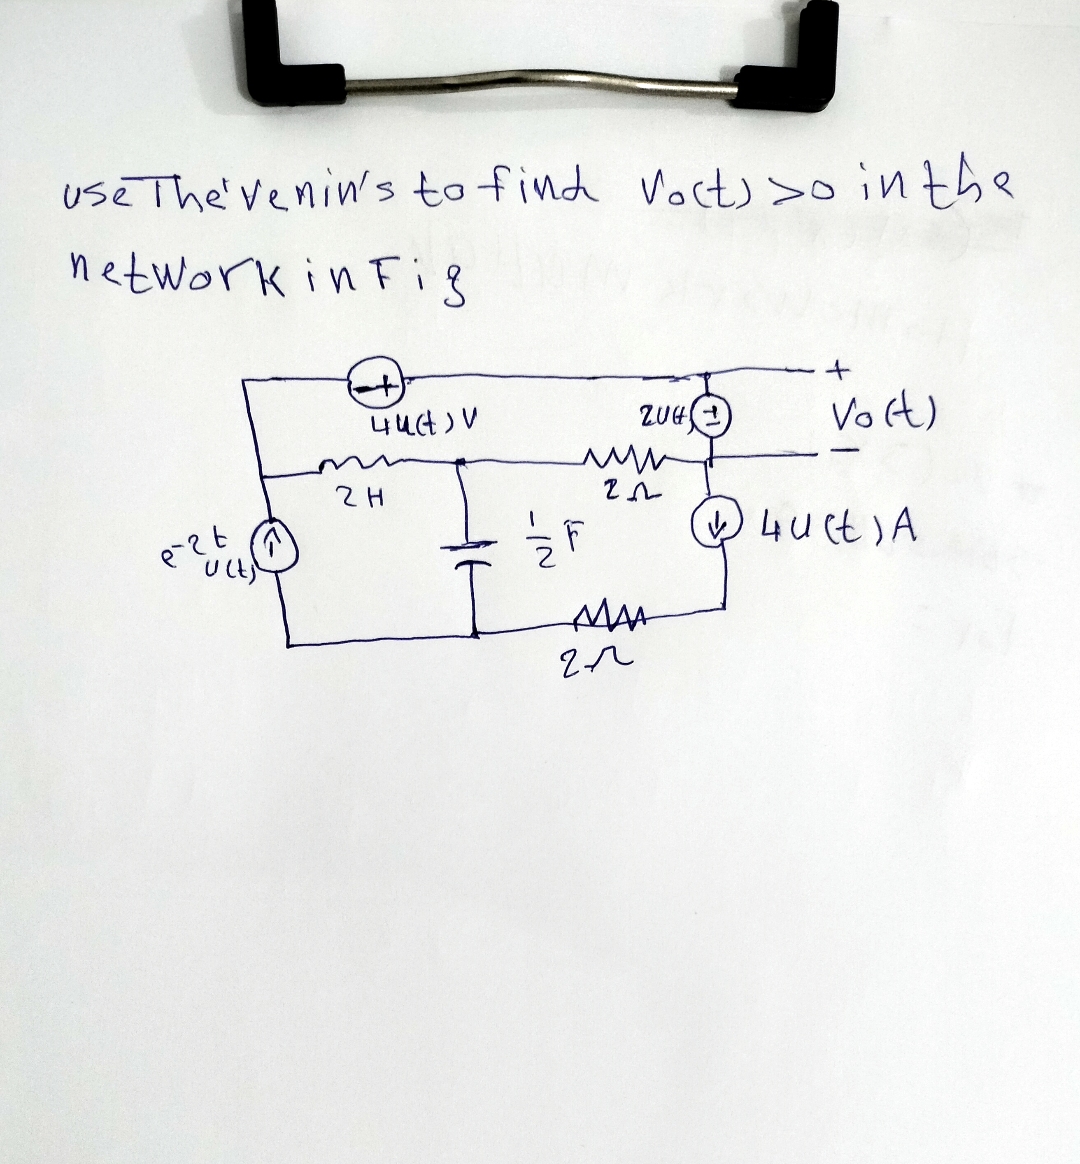 use The'venin's to find Vo(t) >0 in the
network in Fig
- + +
4u(t) V 2u(t) ± Vo(t)
-
2H 2Ω
e-2t u(t) 1/2 F 4u(t) A
2Ω